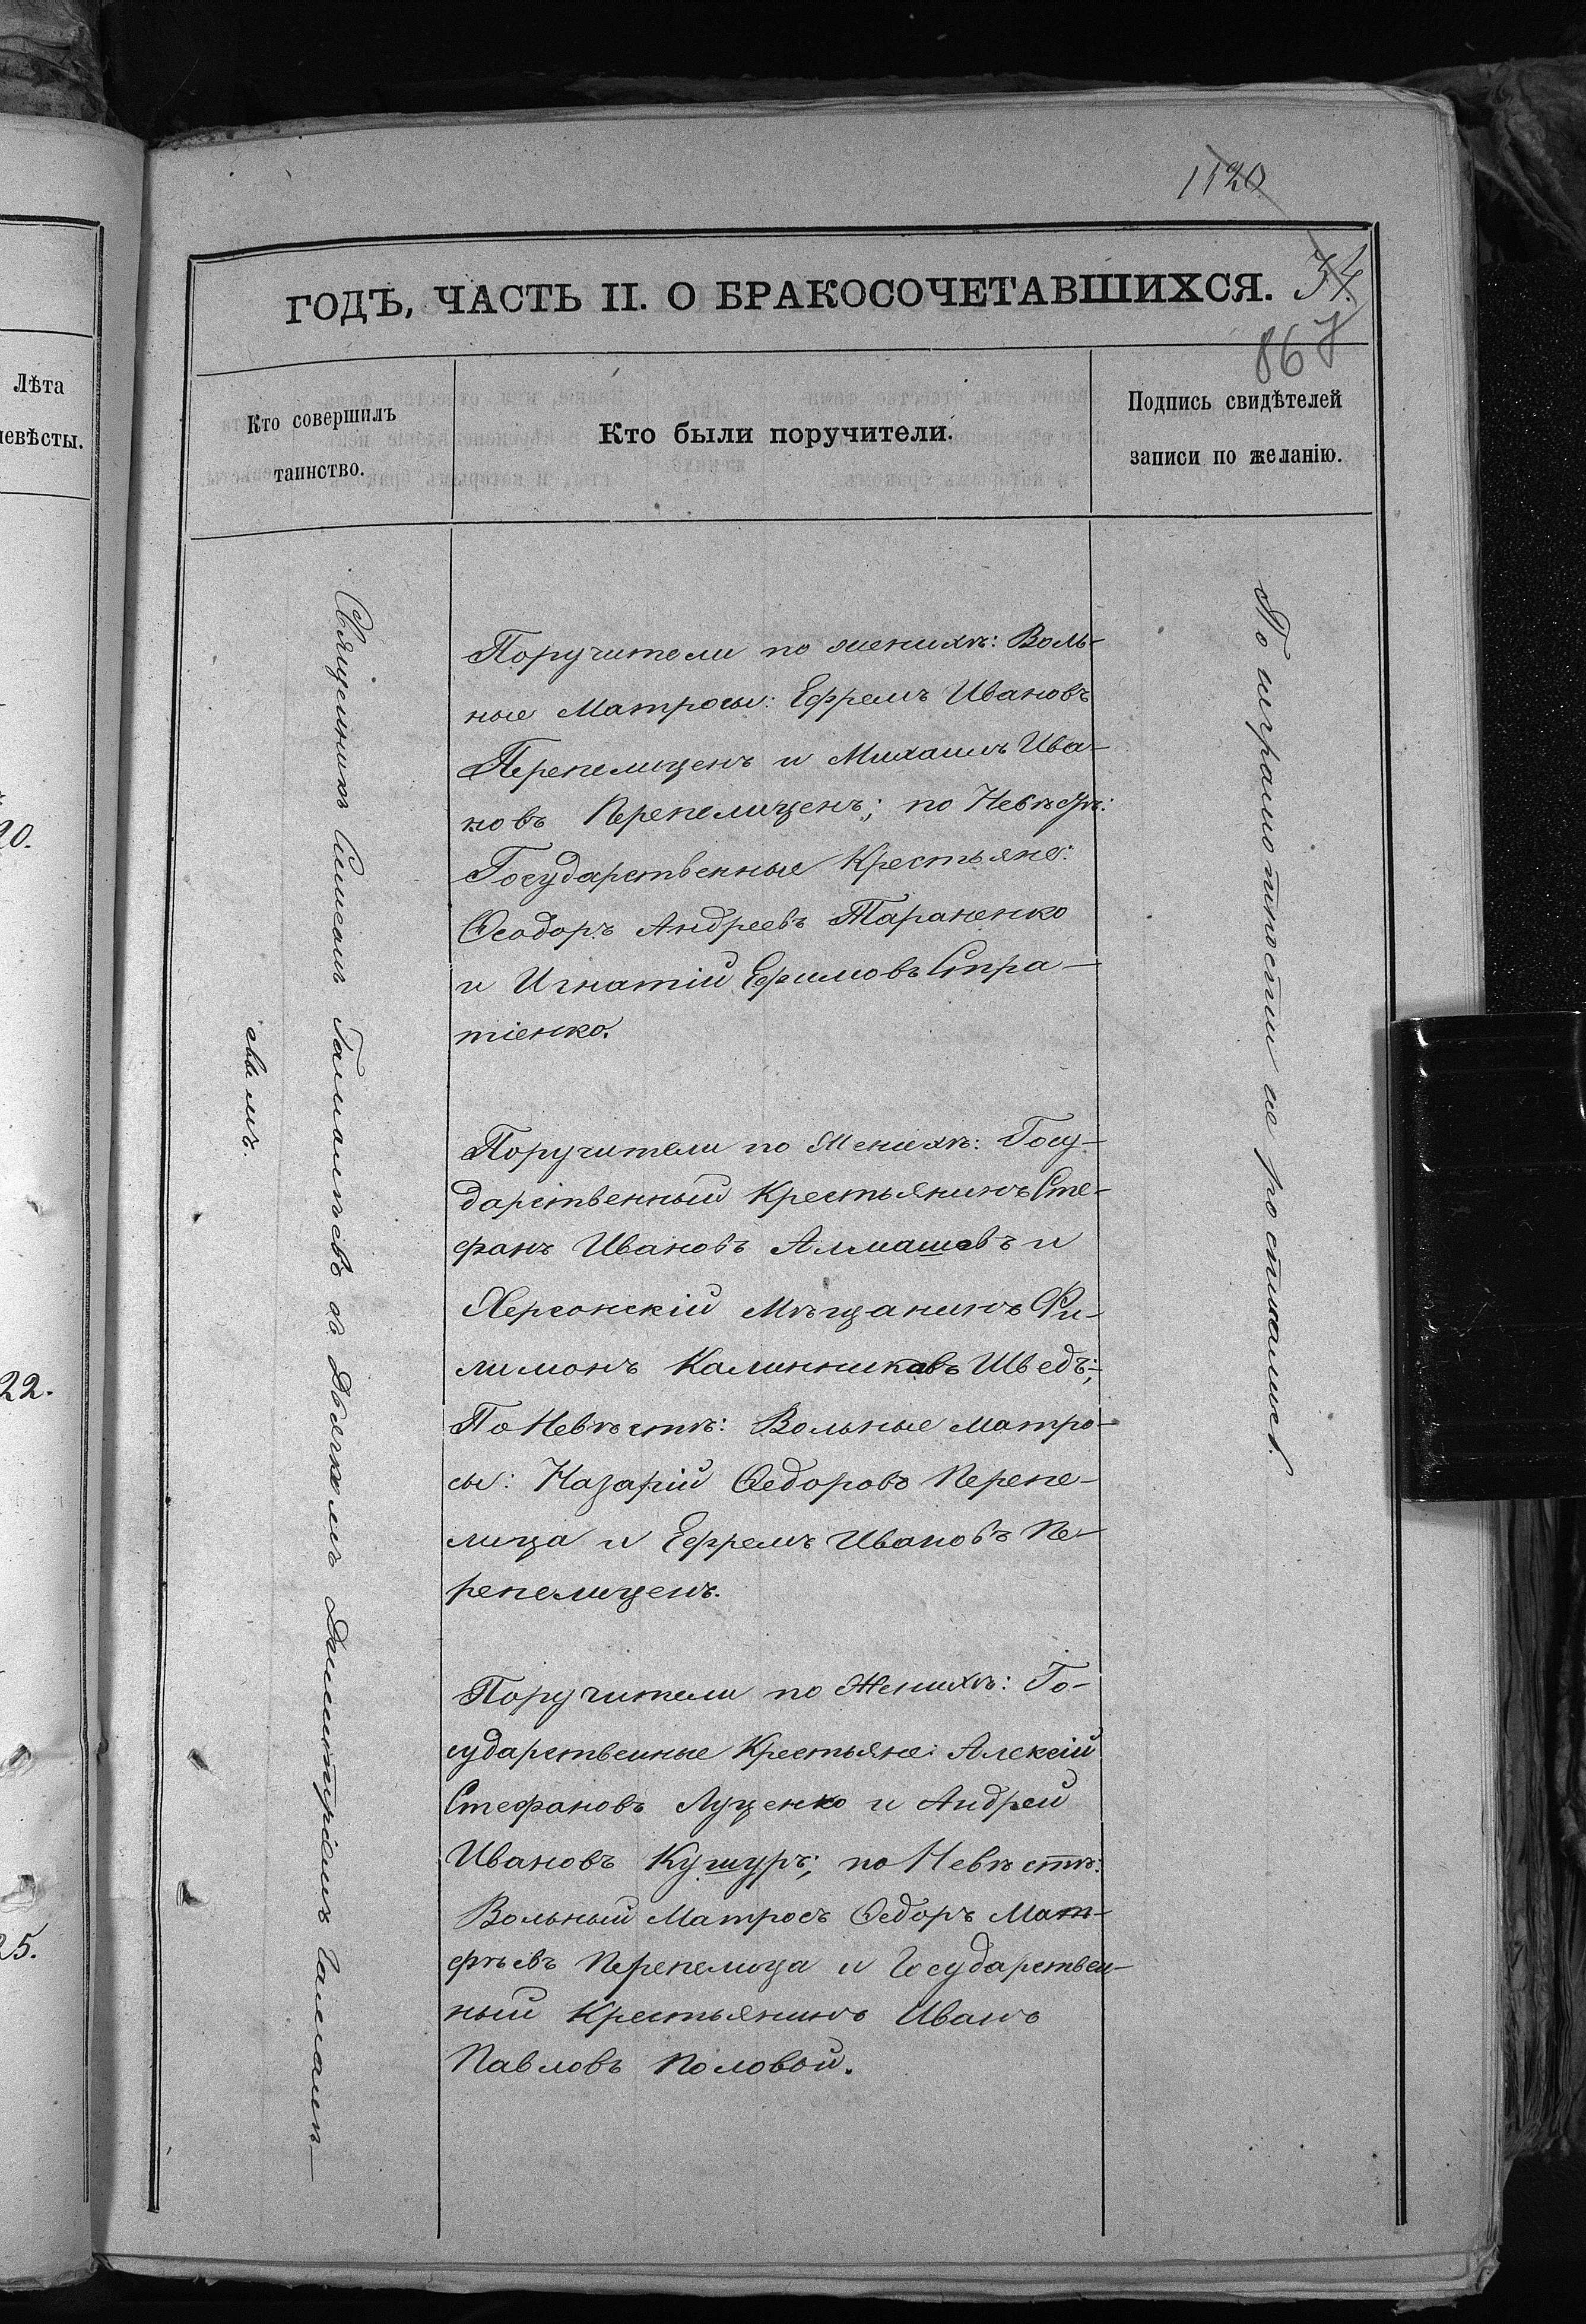 1120
ГОДЪ, ЧАСТЬ II. О БРАКОСОЧЕТАВШИХСЯ.
34.
867
Лѣта
невѣсты.
Кто совершилъ
таинство.
Кто были поручители.
Подпись свидѣтелей
записи по желанію.
20.
22.
25.
Священникъ Симеонъ съ Дьячкомъ Димитріемъ
евымъ.
Поручители по женихѣ: Воль-
ные Матросы: Ефремъ Ивановъ
Перепелиценъ и Михаилъ Ива-
новъ Перепелиценъ; по Невѣстѣ:
Государственные Крестьяне:
Ѳеодоръ Андреевъ Тараненко
и Игнатій Ефимовъ Стра-
тіенко.
Поручители по Женихѣ: Госу-
дарственный Крестьянинъ Сте-
фанъ Ивановъ Алмашовъ и
Херсонскій Мѣщанинъ Фи-
лимонъ Калинниковъ Шведъ;
По Невѣстѣ: Вольные Матро-
сы: Назарій Ѳедоровъ Перепе-
лица и Ефремъ Ивановъ Пе-
репелиценъ.
Поручители по Женихѣ: Го-
сударственные Крестьяне: Алексій
Стефановъ Луценко и Андрей
Ивановъ Кушуръ; по Невѣстѣ:
Вольный Матросъ Ѳедоръ Мат-
фѣевъ Перепелица и Государствен-
ный Крестьянинъ Иванъ
Павловъ Половой.
По неграмотности не росписались.